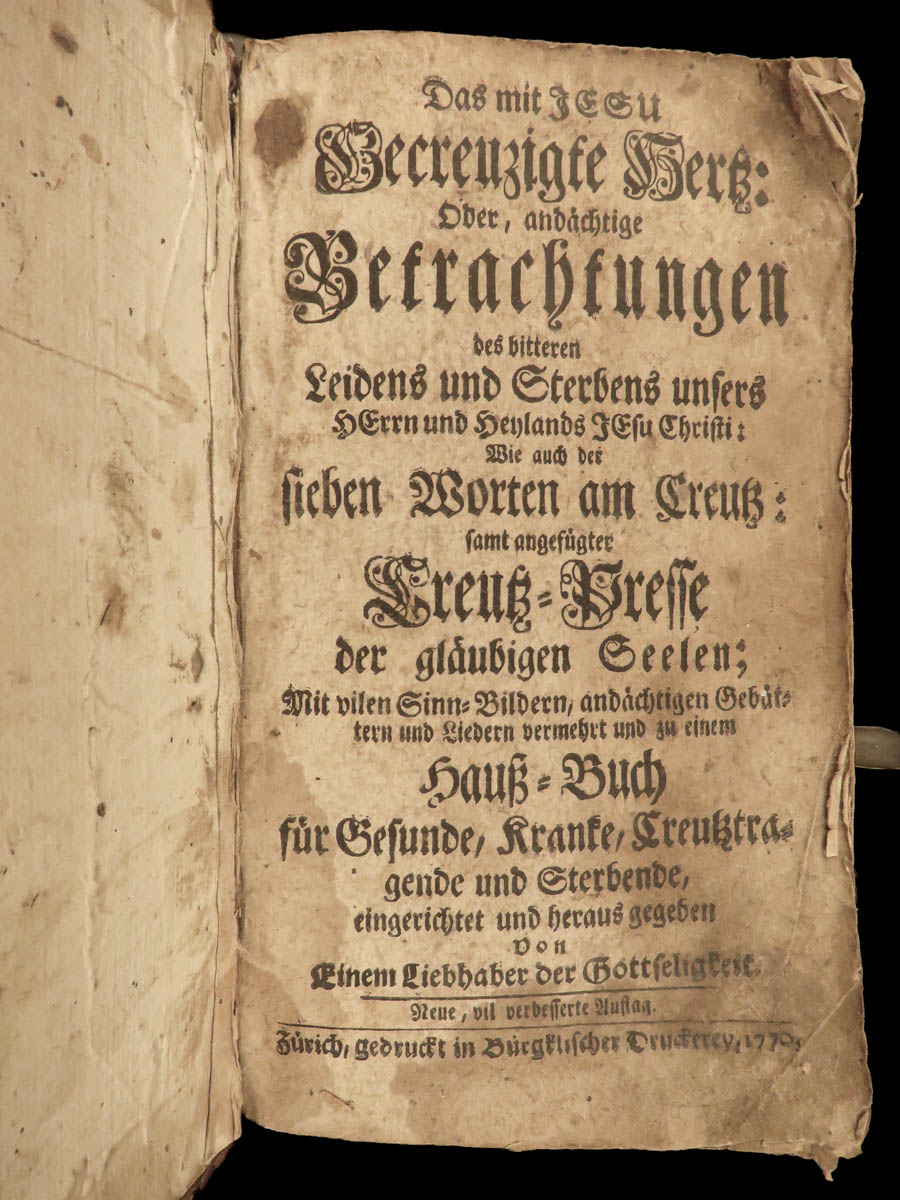 Das mit JESU
Gecreuzigte Hertz:
Oder, andächtige
Betrachtungen
des bitteren
Leidens und Sterbens unsers
HErrn und Heylands JEsu Christi:
Wie auch der
sieben Worten am Creutz:
samt angefügter
Creutz-Presse
der gläubigen Seelen;
Mit vilen Sinn-Bildern, andächtigen Gebät-
tern und Liedern vermehrt und zu einem
Hauß-Buch
für Gesunde, Kranke, Creutztra-
gende und Sterbende,
eingerichtet und heraus gegeben
von
Einem Liebhaber der Gottseligkeit.
Neue, vil verbesserte Auflag.
Zürich, gedruckt in Bürgklischer Druckerey, 1770.